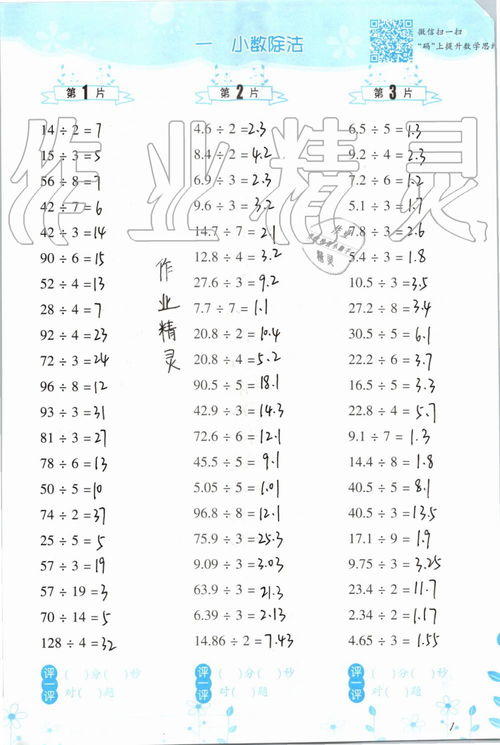 一 小数除法
微信扫一扫
"码"上提升数学思
第1片
14 ÷ 2 = 7
15 ÷ 3 = 5
56 ÷ 8 = 7
42 ÷ 7 = 6
42 ÷ 3 = 14
90 ÷ 6 = 15
52 ÷ 4 = 13
28 ÷ 4 = 7
92 ÷ 4 = 23
72 ÷ 3 = 24
96 ÷ 8 = 12
93 ÷ 3 = 31
81 ÷ 3 = 27
78 ÷ 6 = 13
50 ÷ 5 = 10
74 ÷ 2 = 37
25 ÷ 5 = 5
57 ÷ 3 = 19
57 ÷ 19 = 3
70 ÷ 14 = 5
128 ÷ 4 = 32
评一评
( )分( )秒
对( )题
第2片
4.6 ÷ 2 = 2.3
8.4 ÷ 2 = 4.2
6.9 ÷ 3 = 2.3
9.6 ÷ 3 = 3.2
14.7 ÷ 7 = 2.1
12.8 ÷ 4 = 3.2
27.6 ÷ 3 = 9.2
7.7 ÷ 7 = 1.1
20.8 ÷ 2 = 10.4
20.8 ÷ 4 = 5.2
90.5 ÷ 5 = 18.1
42.9 ÷ 3 = 14.3
72.6 ÷ 6 = 12.1
45.5 ÷ 5 = 9.1
5.05 ÷ 5 = 1.01
96.8 ÷ 8 = 12.1
75.9 ÷ 3 = 25.3
9.09 ÷ 3 = 3.03
63.9 ÷ 3 = 21.3
6.39 ÷ 3 = 2.13
14.86 ÷ 2 = 7.43
评一评
( )分( )秒
对( )题
第3片
6.5 ÷ 5 = 1.3
9.2 ÷ 4 = 2.3
7.2 ÷ 6 = 1.2
5.1 ÷ 3 = 1.7
7.8 ÷ 3 = 2.6
5.4 ÷ 3 = 1.8
10.5 ÷ 3 = 3.5
27.2 ÷ 8 = 3.4
30.5 ÷ 5 = 6.1
22.2 ÷ 6 = 3.7
16.5 ÷ 5 = 3.3
22.8 ÷ 4 = 5.7
9.1 ÷ 7 = 1.3
14.4 ÷ 8 = 1.8
40.5 ÷ 5 = 8.1
40.5 ÷ 3 = 13.5
17.1 ÷ 9 = 1.9
9.75 ÷ 3 = 3.25
23.4 ÷ 2 = 11.7
2.34 ÷ 2 = 1.17
4.65 ÷ 3 = 1.55
评一评
( )分( )秒
对( )题
作业精灵
作业精灵
作业
精灵
1